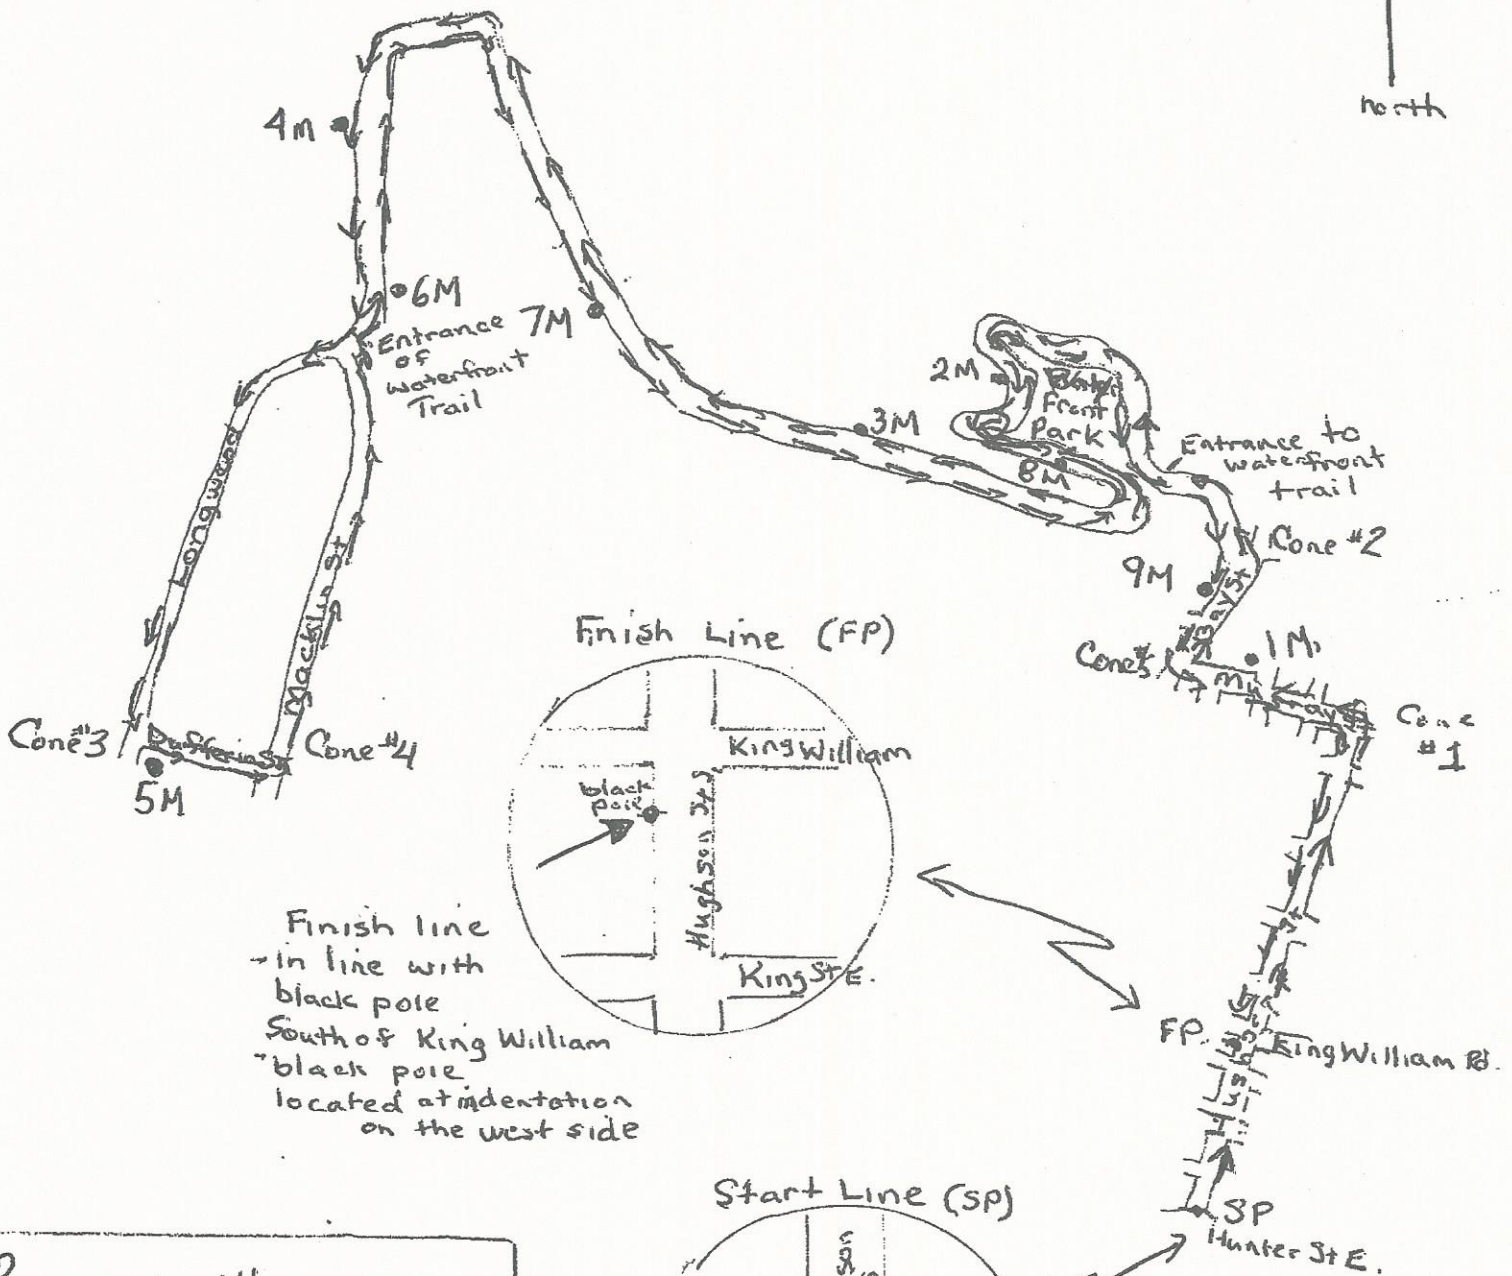 north
4m
6M
Entrance
of
waterfront
Trail
7M
3M
2M
Front
Park
8M
Entrance to
waterfront
trail
Cone #2
9M
Bay St
1M
Cone #5
Cone
#1
Longwood
Macklin St
Cone #3
Dufferin St
Cone #4
5M
Finish Line (FP)
King William
black
pole
Hughson St
King St E.
Finish line
- in line with
black pole
South of King William
- black pole
located at indentation
on the west side
FP.
King William Rd.
SP
Hunter St E.
Start Line (SP)